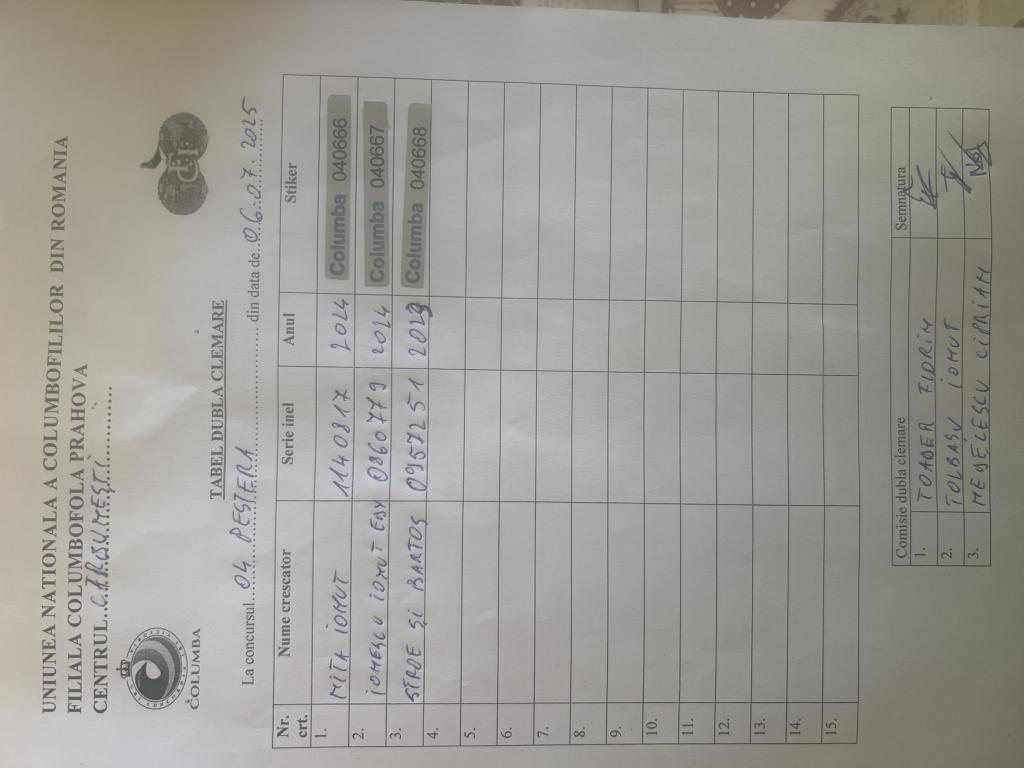 UNIUNEA NATIONALA A COLUMBOFILILOR DIN ROMANIA
FILIALA COLUMBOFOLA PRAHOVA
CENTRUL...CĂRBUNEȘTI............
COLUMBA
TABEL DUBLA CLEMARE
La concursul...04 PEȘTERA........................ din data de..06.07.2025......
Nr. crt. Nume crescator Serie inel Anul Stiker
1. MIȚA IONUT 1140817 2024 Columba 040666
2. IONESCU IONUT EDY 0860779 2024 Columba 040667
3. STROE ȘI BARTOS 0957251 Columba 040668
4.
5.
6.
7.
8.
9.
10.
11.
12.
13.
14.
15.
Comisie dubla clemare Semnatura
1. TOADER
2. TOLBASU IONUT
3. CIPRIAN